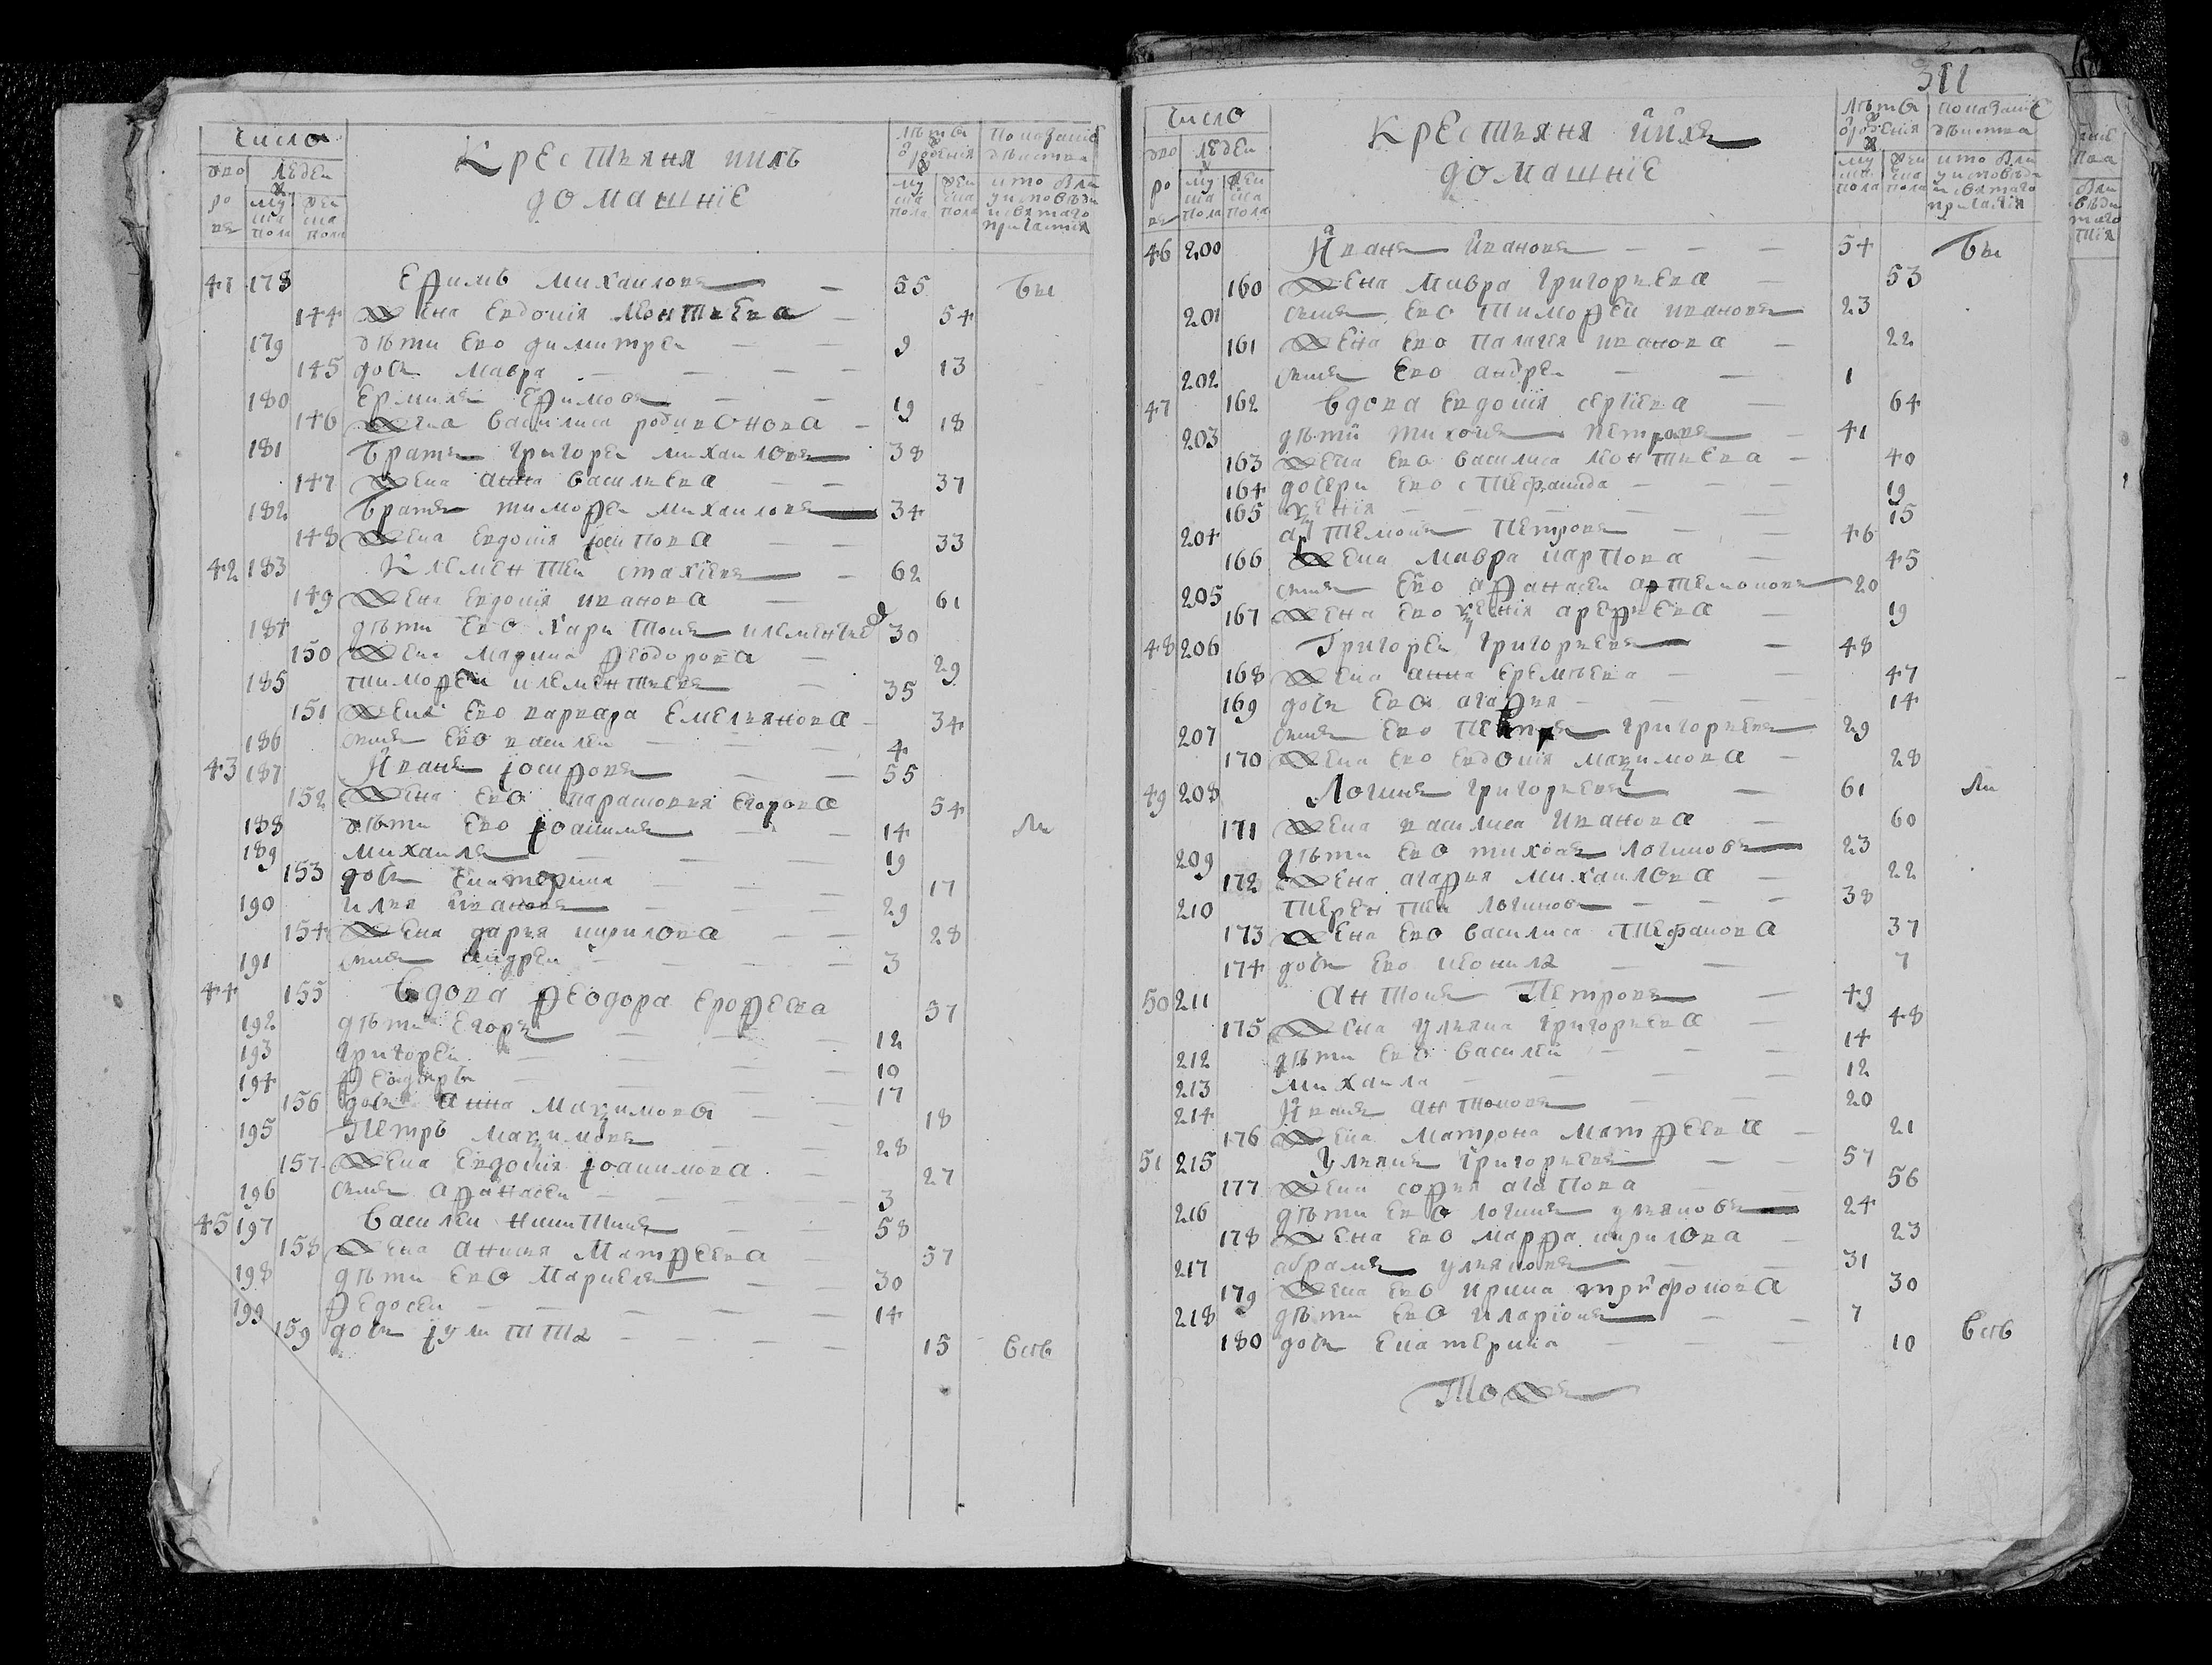 Число
Крестьяня ихъ
домашнїе
Лѣта
ѿ рожденїя
Показанїе
дѣиства
дво
людеи
ро
му
жен
ска
ска
пола
пола
му
жен
ска
ска
пола
пола
кто былъ
у исповѣди
и святаго
причастия
41 178 Ефимъ Михаиловъ — 55 Бы
144 Жена Евдокїя Леонтьева — 54
179 дѣти ево Димитреи — — 9
145 дочь Мавра — — — — 13
180 Ермилъ Ефимовъ — — 19
146 Жена Василиса Родивонова — 18
181 Братъ Григореи Михаиловъ 38
147 Жена Анна Васильева — — 37
182 Братъ Тимофеи Михаиловъ 34
148 Жена Евдокїя Осипова — — 33
42 183 Клементеи Стахїевъ — 62
149 Жена Евдокїя Иванова — 61
184 дѣти ево Харитонъ Клементьев 30
150 Жена Марина Феодорова — 29
185 Тимофеи Клементьевъ — 35
151 Жена ево Варвара Емельянова — 34
186 сынъ ево Василеи — — — 4
43 187 Иванъ Іосифовъ — — 55
152 Жена ево Парасковья Егорова 54
188 дѣти ево Іоакимъ — — 14 ли
189 Михаилъ — — — 19
153 дочь Екатерина — — — 17
190 Илья Ивановъ — 29
154 Жена Дарья Кирилова — — — 28
191 сынъ Андреи — — — — 3
44 155 Вдова Феодора Ерофеева 37
192 дѣти Егоръ — — — 12
193 Григореи — — — — 10
194 Феодоръ — — — — 17
156 дочь Анна Маѯимова — — 18
195 Петръ Маѯимовъ — — 28
157 Жена Евдокїя Іоакимова — — 27
196 сынъ Афанасеи — — — — 3
45 197 Василеи Никитинъ — — 58
158 Жена Анисья Матфеева — — 57
198 дѣти ево Маркелъ — 30
199 Федосеи — — — — — 14
159 дочь Іулитта — — — — 15 всѣ
311
Число
Крестьяня ихъ
домашнїе
Лѣта
ѿ рожденїя
Показанїе
дѣиства
дво
людеи
ро
му
жен
ска
ска
пола
пола
му
жен
ска
ска
пола
пола
кто былъ
у исповѣди
и святаго
причастїя
46 200 Иванъ Ивановъ — — — 54 Бы
160 Жена Мавра Григорьева — 53
201 сынъ ево Тимофеи Ивановъ 23
161 Жена ево Палагея Иванова — 22
202 сынъ ево Андреи — — 1
47 162 Вдова Евдокїя Сергїева — 64
203 дѣти Тихонъ Петровъ — 41
163 Жена ево Василиса Леонтьева — 40
164 дочери ево Стефанида — — — 19
165 Ѯенїя — — — — — 15
204 Артемонъ Петровъ — — 46
166 Жена Мавра Карпова — 45
205 сынъ ево Афанасеи Артемоновъ 20
167 Жена ево Ѯенїя Арефьева — 19
48 206 Григореи Григорьевъ — 48
168 Жена Анна Еремѣева — — 47
169 дочь ево Агафья — — — 14
207 сынъ ево Петръ Григорьевъ 29
170 Жена ево Евдокїя Маѯимова — 28
49 208 Логинъ Григорьевъ — 61 ли
171 Жена Василиса Иванова — 60
209 дѣти ево Тихонъ Логиновъ 23
172 Жена Агафья Михаилова — 22
210 Терентеи Логиновъ — — — 38
173 Жена ево Василиса Стефанова 37
174 дочь ево Неонила — — 7
50 211 Антонъ Петровъ — 49
175 Жена Ульяна Григорьева — 48
212 дѣти ево Василеи — — — 14
213 Михаила — — — — 12
214 Иванъ Антоновъ — — 20
176 Жена Матрона Матфеева — 21
51 215 Ульянъ Григорьевъ — — 57
177 Жена Софья Агапова — — 56
216 дѣти ево Логинъ Ульяновъ 24
178 Жена ево Марфа Кирилова — 23
217 Абрамъ Ульяновъ — — 31
179 Жена ево Ирина Трифонова 30
218 дѣти ево Иларїонъ — — 7
180 дочь Екатерина — — — 10 всѣ